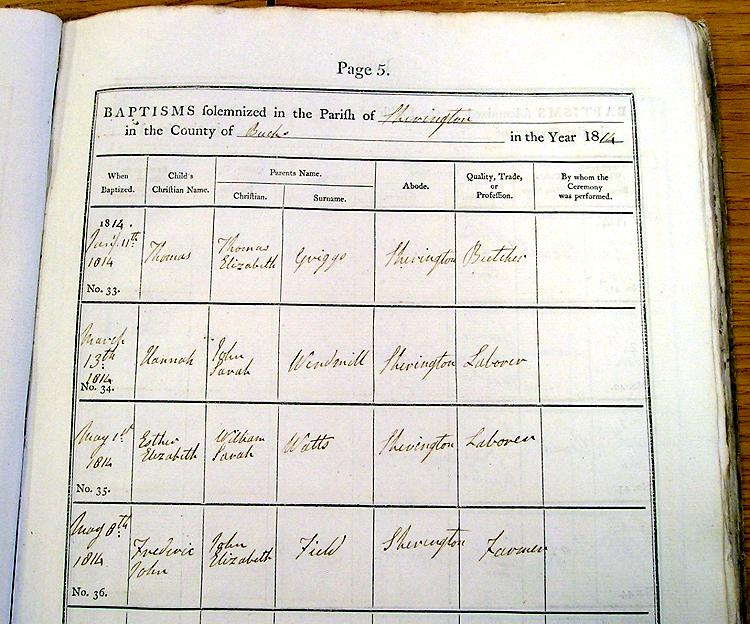 Page 5.
BAPTISMS solemnized in the Parish of Sherington
in the County of Bucks in the Year 1814
When Baptized.
Child's Christian Name.
Parents Name.
Christian.
Surname.
Abode.
Quality, Trade, or Profession.
By whom the Ceremony was performed.
1814.
11th
1814
No. 33.
Thomas
Thomas
Elizabeth
Griggs
Sherington
Butcher
March
13th
1814
No. 34.
Hannah
John
Sarah
Windmill
Sherington
Laborer
May 1st
1814
No. 35.
Esther
Elizabeth
William
Sarah
Watts
Sherington
Laborer
May 8th
1814
No. 36.
Frederic
John
John
Elizabeth
Field
Sherington
Farmer